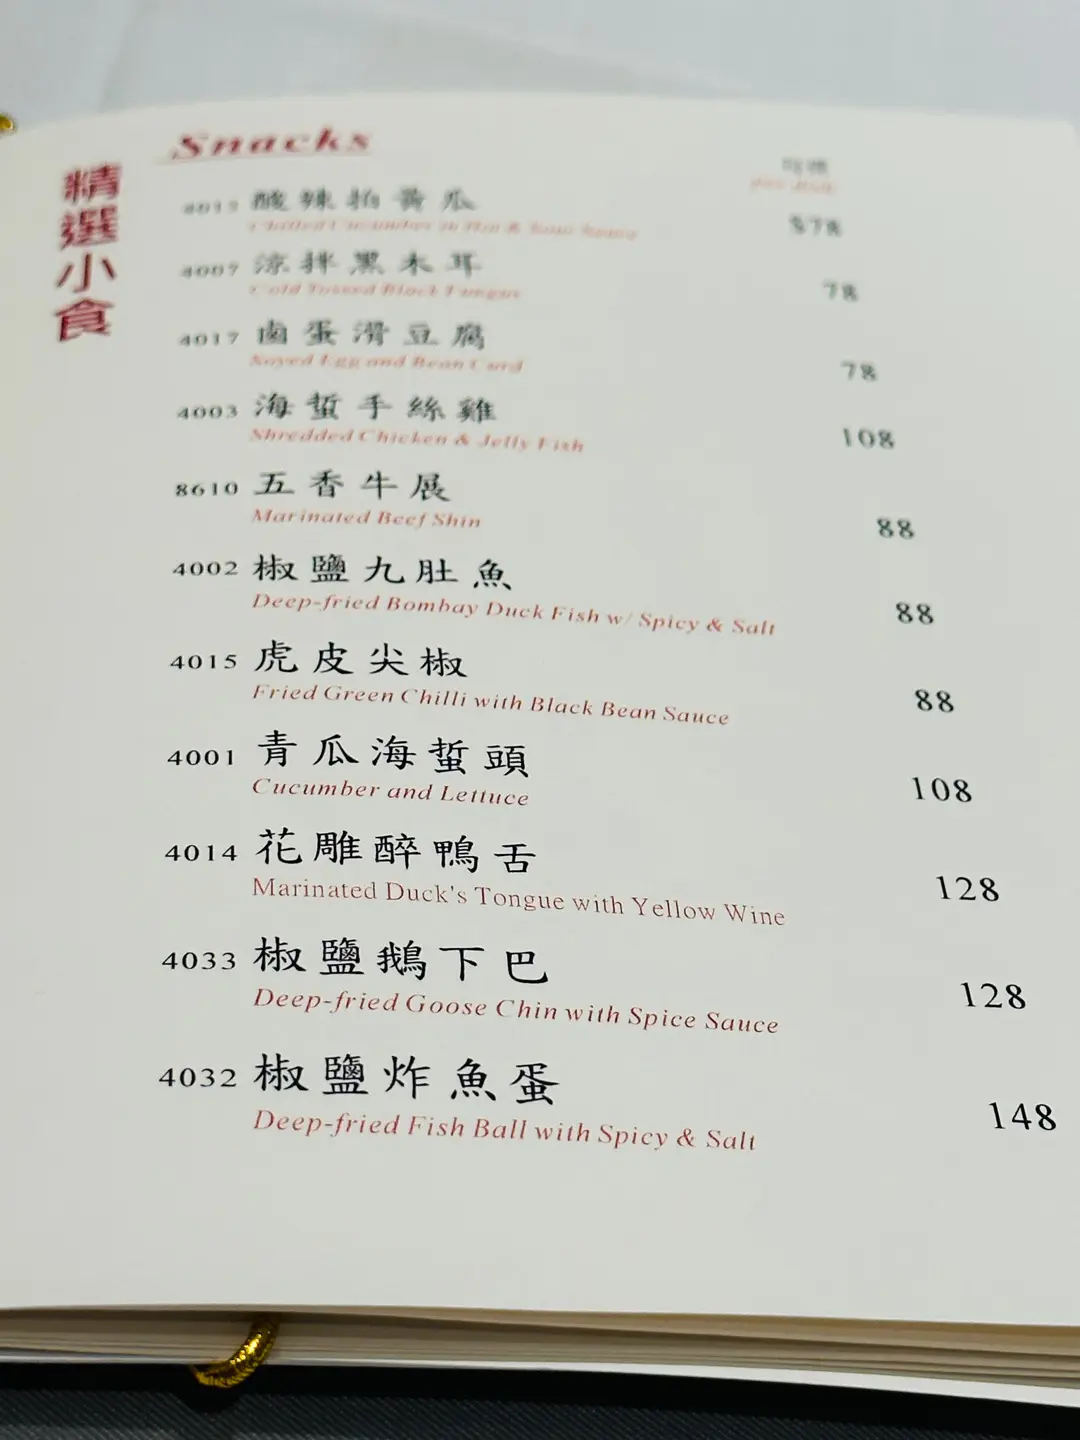 Snacks
精選小食
每碟
Per Dish
4013 酸辣拍黃瓜 $78
Chilled Cucumber in Hot & Sour Sauce
4007 涼拌黑木耳 78
Cold Tossed Black Fungus
4017 鹵蛋滑豆腐 78
Soyed Egg and Bean Curd
4003 海蜇手絲雞 108
Shredded Chicken & Jelly Fish
8610 五香牛展 88
Marinated Beef Shin
4002 椒鹽九肚魚 88
Deep-fried Bombay Duck Fish w/ Spicy & Salt
4015 虎皮尖椒 88
Fried Green Chilli with Black Bean Sauce
4001 青瓜海蜇頭 108
Cucumber and Lettuce
4014 花雕醉鴨舌 128
Marinated Duck's Tongue with Yellow Wine
4033 椒鹽鵝下巴 128
Deep-fried Goose Chin with Spice Sauce
4032 椒鹽炸魚蛋 148
Deep-fried Fish Ball with Spicy & Salt